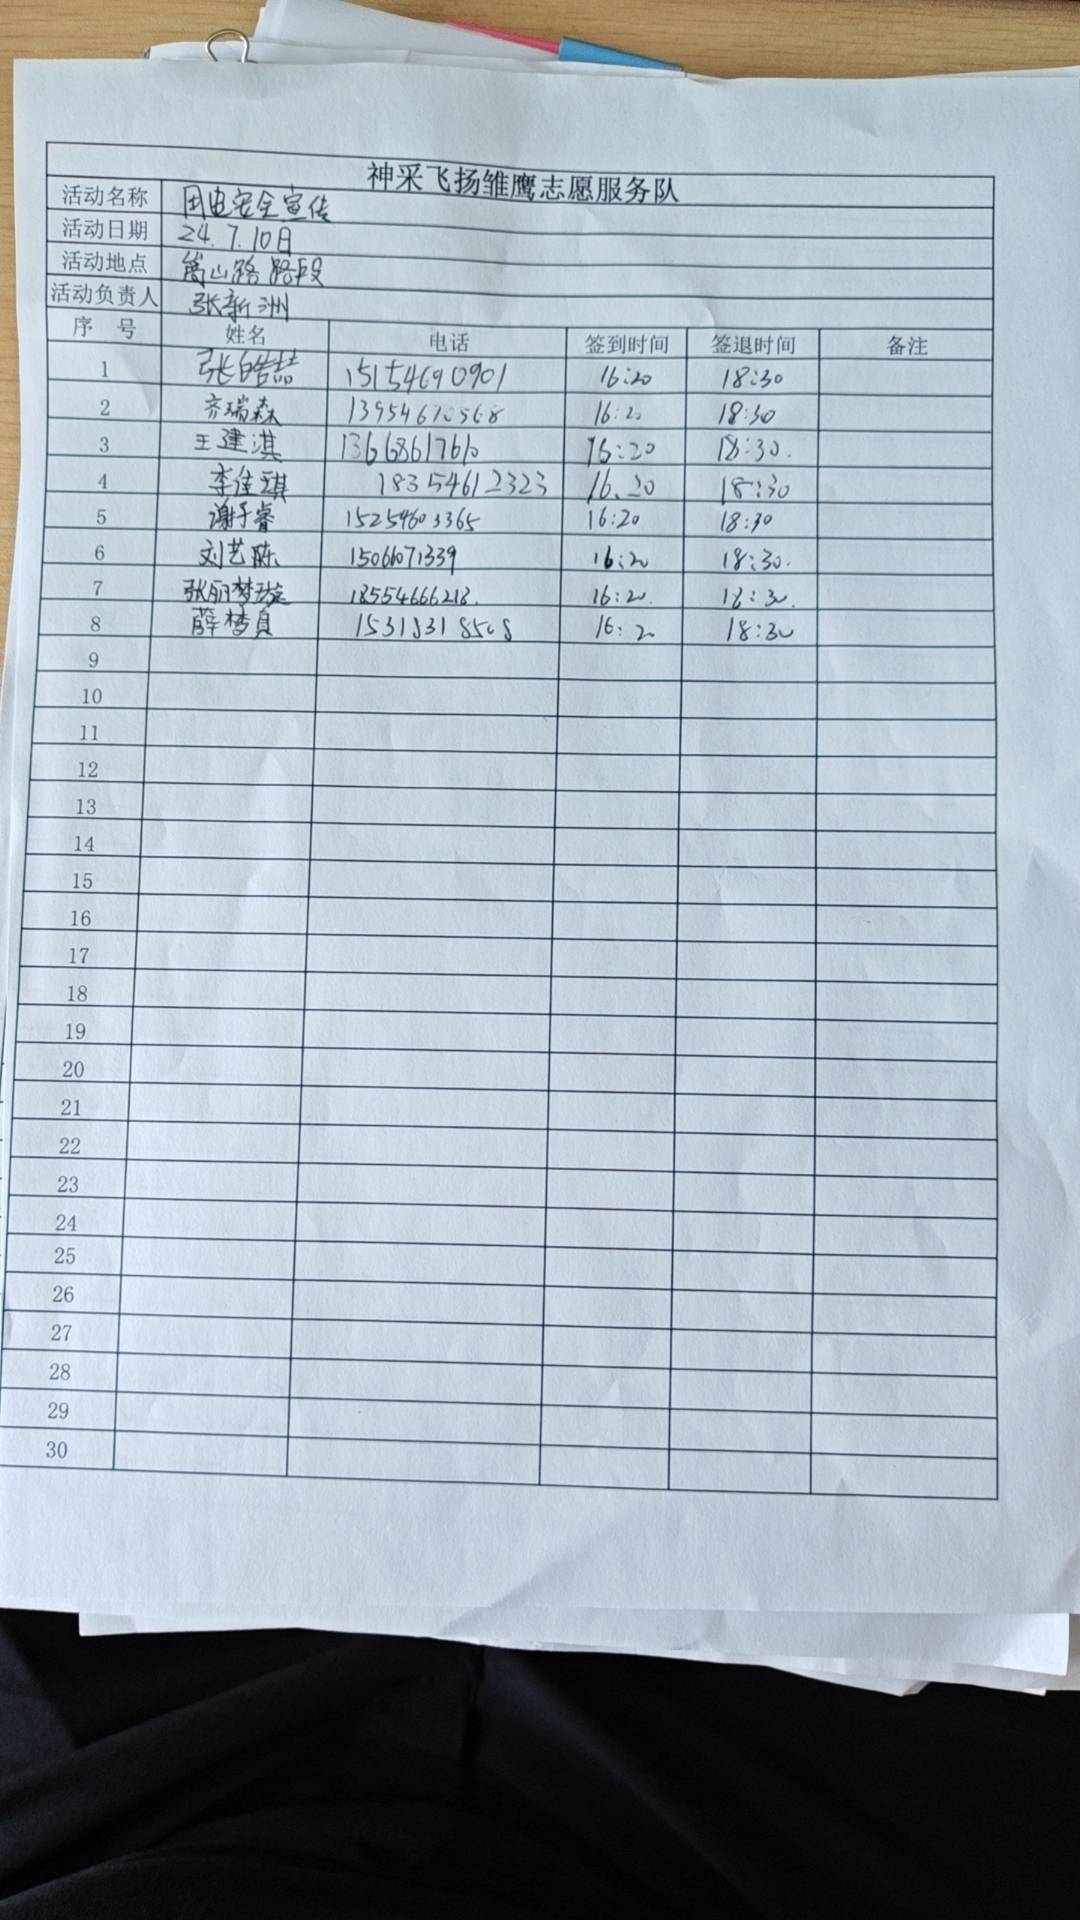 神采飞扬雏鹰志愿服务队
活动名称 用电安全宣传
活动日期 24.7.10日
活动地点 嵩山路路段
活动负责人 张新洲
序 号 姓名 电话 签到时间 签退时间 备注
1 张皓喆 15154690901 16:20 18:30
2 齐瑞森 16:20 18:30
3 王建淇 13668617610 16:20 18:30.
4 李佳琪 18354612323 16.20 18:30
5 谢子睿 15254603365 16:20 18:30
6 刘艺陈 15066071339 16:20 18:30.
7 张丽梦璇 18554666218. 16:20. 18:30.
8 薛梦真 15318318508 16:20 18:30
9
10
11
12
13
14
15
16
17
18
19
20
21
22
23
24
25
26
27
28
29
30